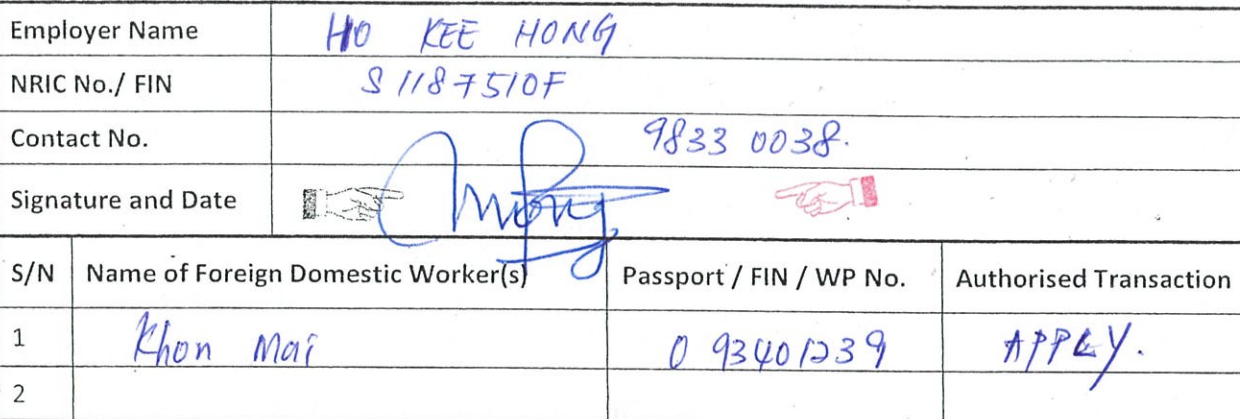 Employer Name HO KEE HONG
NRIC No./ FIN S1187510F
Contact No. 9833 0038.
Signature and Date
S/N Name of Foreign Domestic Worker(s) Passport / FIN / WP No. Authorised Transaction
1 Khon Mai 0 93401239 APPLY.
2